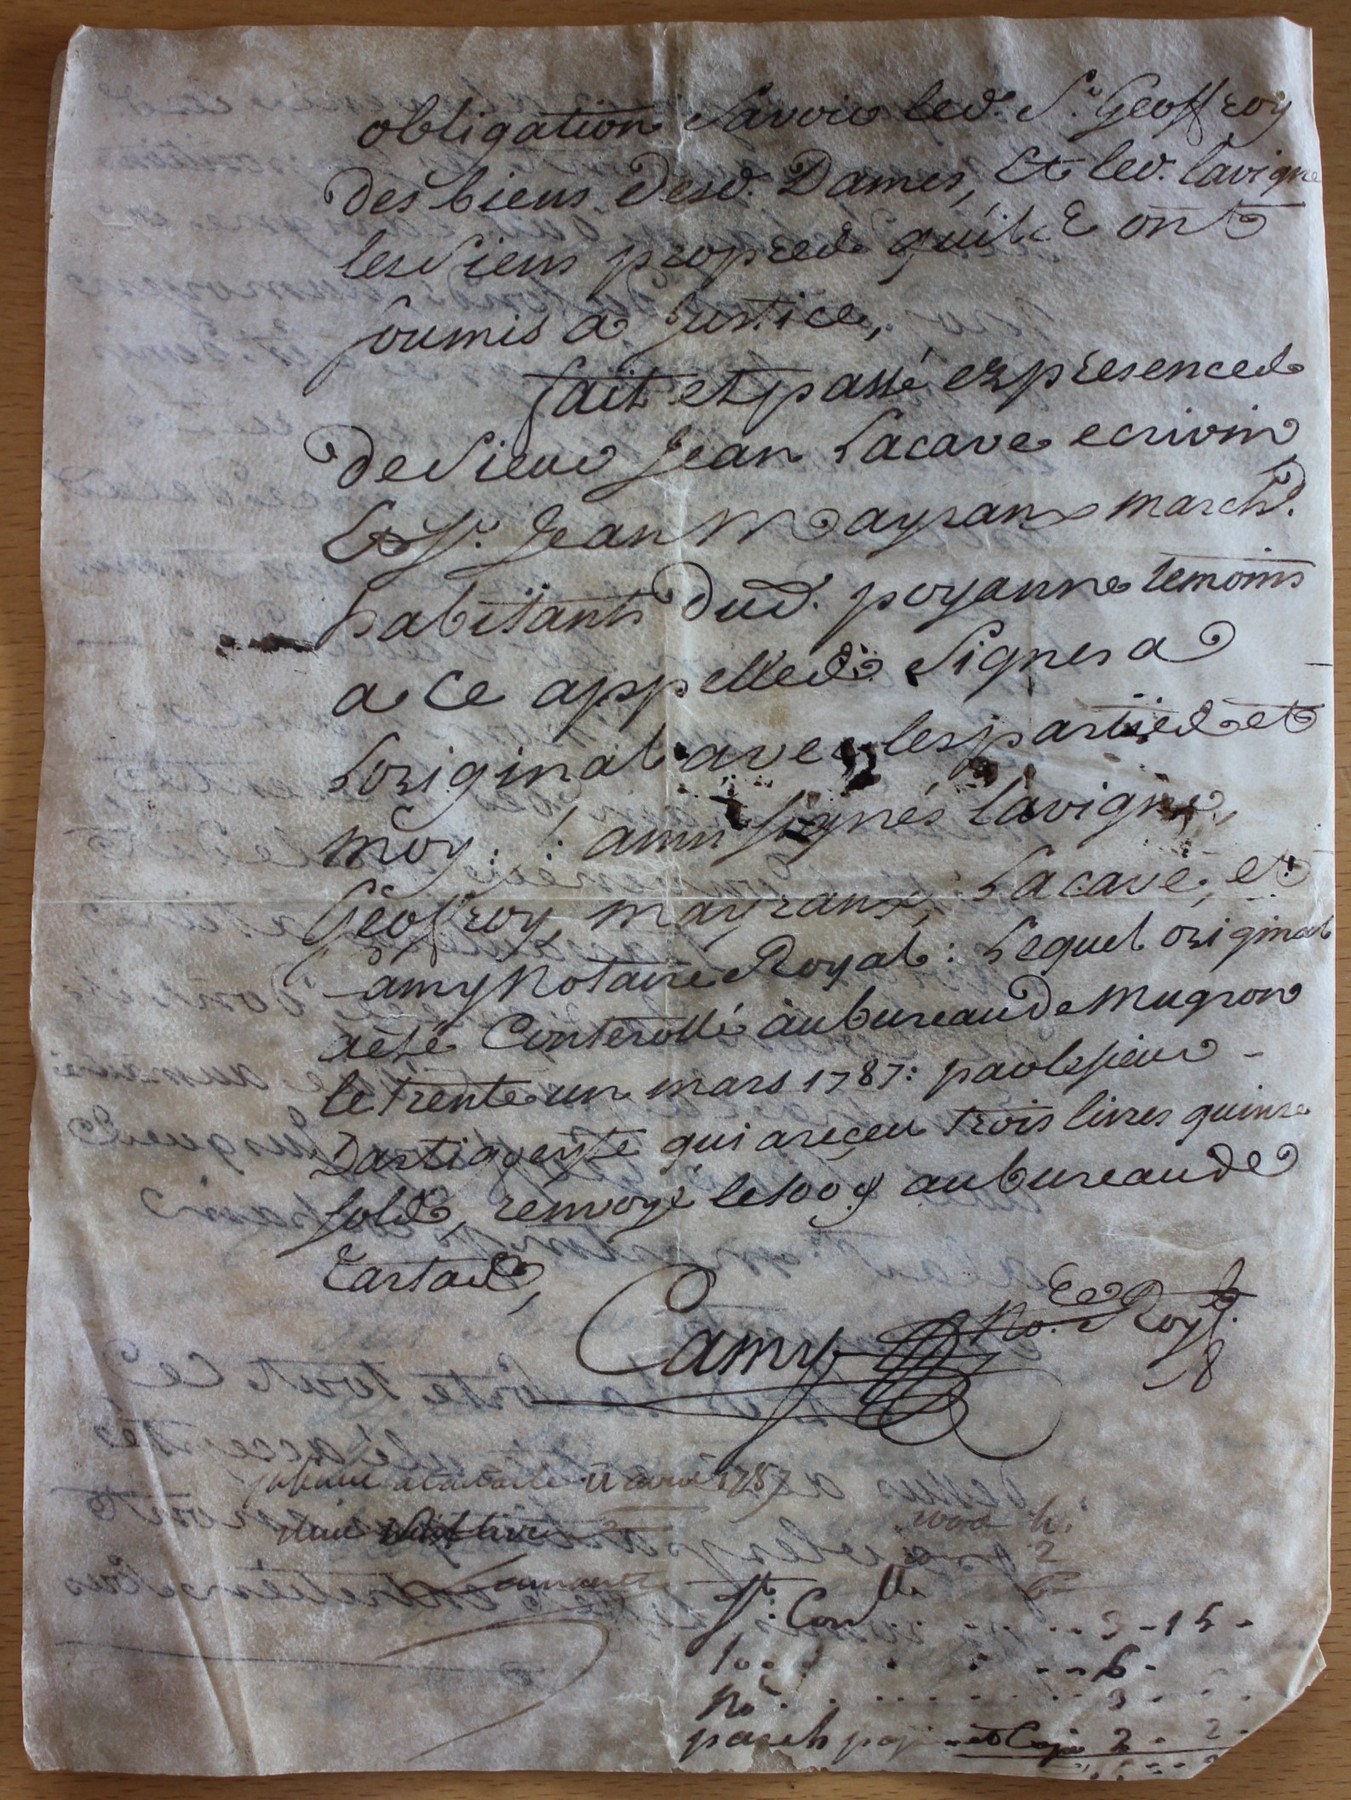 obligation Savoir led. Sr. Geoffroy
des biens desd. Dames, Et led. lavigne
les Siens propred quils ont
soumis a Justice,
fait et passé en presenced
de Sieur Jean Lacave ecrivin
Et Sr. Jean Mayranx march.d
habitants dud. poyanne temoins
a ce appelled Signes a
Loriginal avec les partied et
moy : ainsi signés lavigne,
Geoffroy, mayranx, Lacave, et
Camy Notaire Royal : Lequel original
a été Controllé au bureau de Mugron
le trente un mars 1787 : par le sieur
Dartigoeyte qui a reçeu trois livres quinze
sold, renvoyé le 100.e au bureau de
Tartad,
Camy No.re Royl.
avril 1787
2000 h.
2
Con.lle 3 - 15 -
100.e 6 -
No. 3
parch pap. et Copie 2 - 2 -